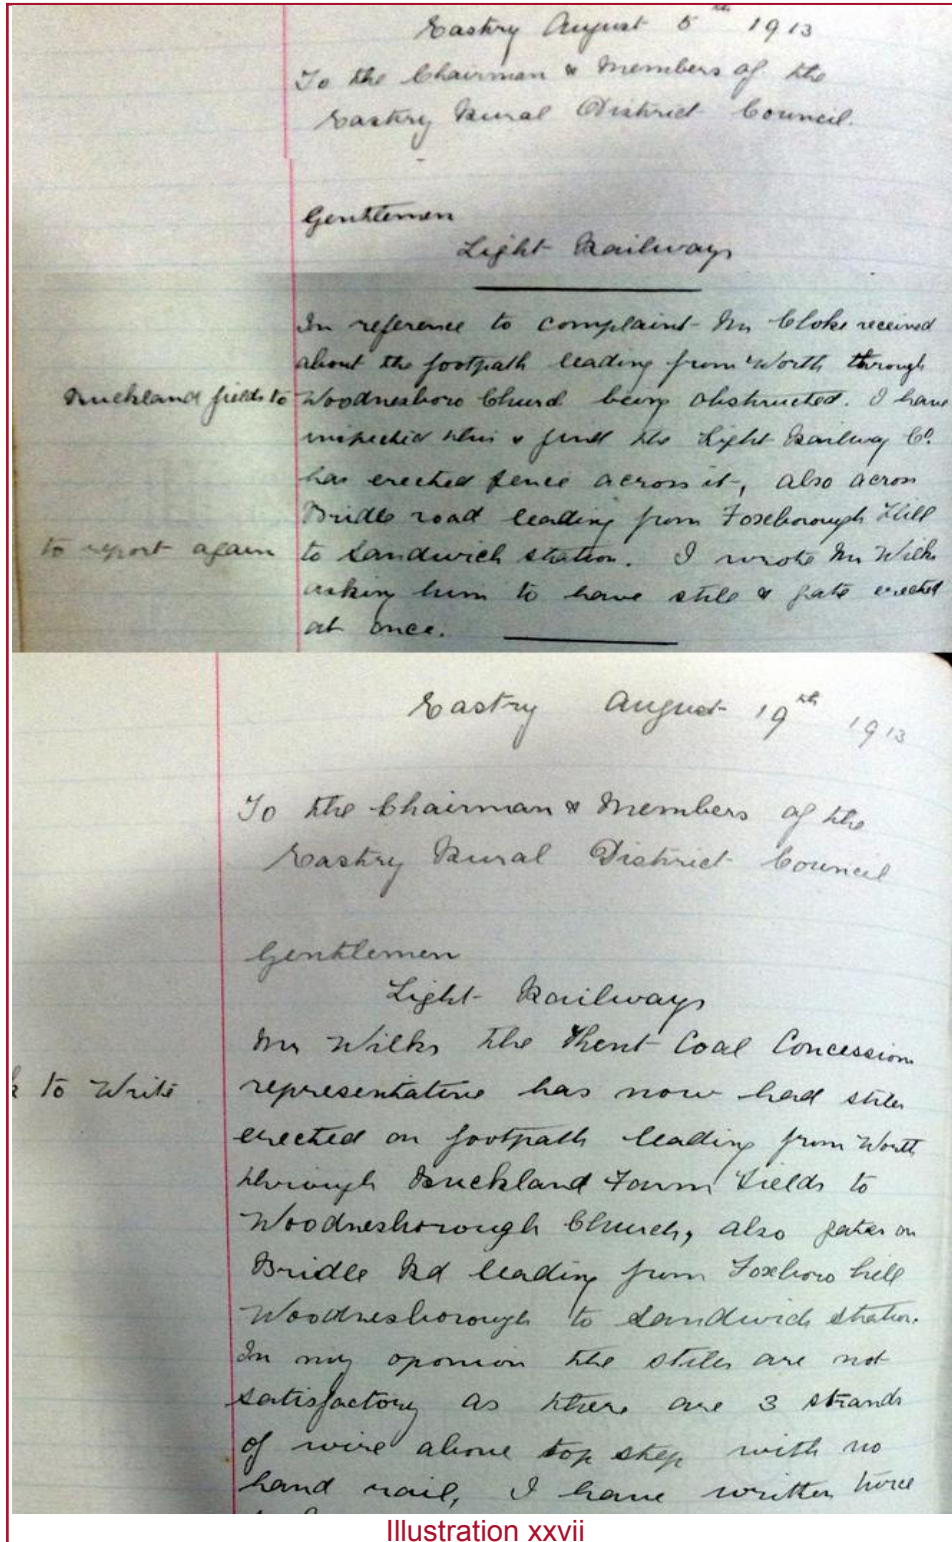 Eastry August 5th 1913
To the Chairman & Members of the
Eastry Rural District Council.
Gentlemen
Light Railways
In reference to complaint Mr Cloke received
about the footpath leading from Worth through
Buckland fields to Woodnesboro Church being obstructed. I have
inspected this & find the Light Railway Co.
has erected fence across it, also across
Bridle road leading from Foxborough Hill
to report again to Sandwich station. I wrote Mr Wilks
asking him to have stile & gate erected
at once.
Eastry August 19th 1913
To the Chairman & Members of the
Eastry Rural District Council
Gentlemen
Light Railways
Mr Wilks the Kent Coal Concession
to Write representative has now had stiles
erected on footpath leading from Worth
through Buckland Farm Fields to
Woodnesborough Church, also gates on
Bridle Rd leading from Foxboro hill
Woodnesborough to Sandwich station.
In my oponion the stiles are not
satisfactory as there are 3 strands
of wire above top step with no
hand rail, I have written twice
Illustration xxvii